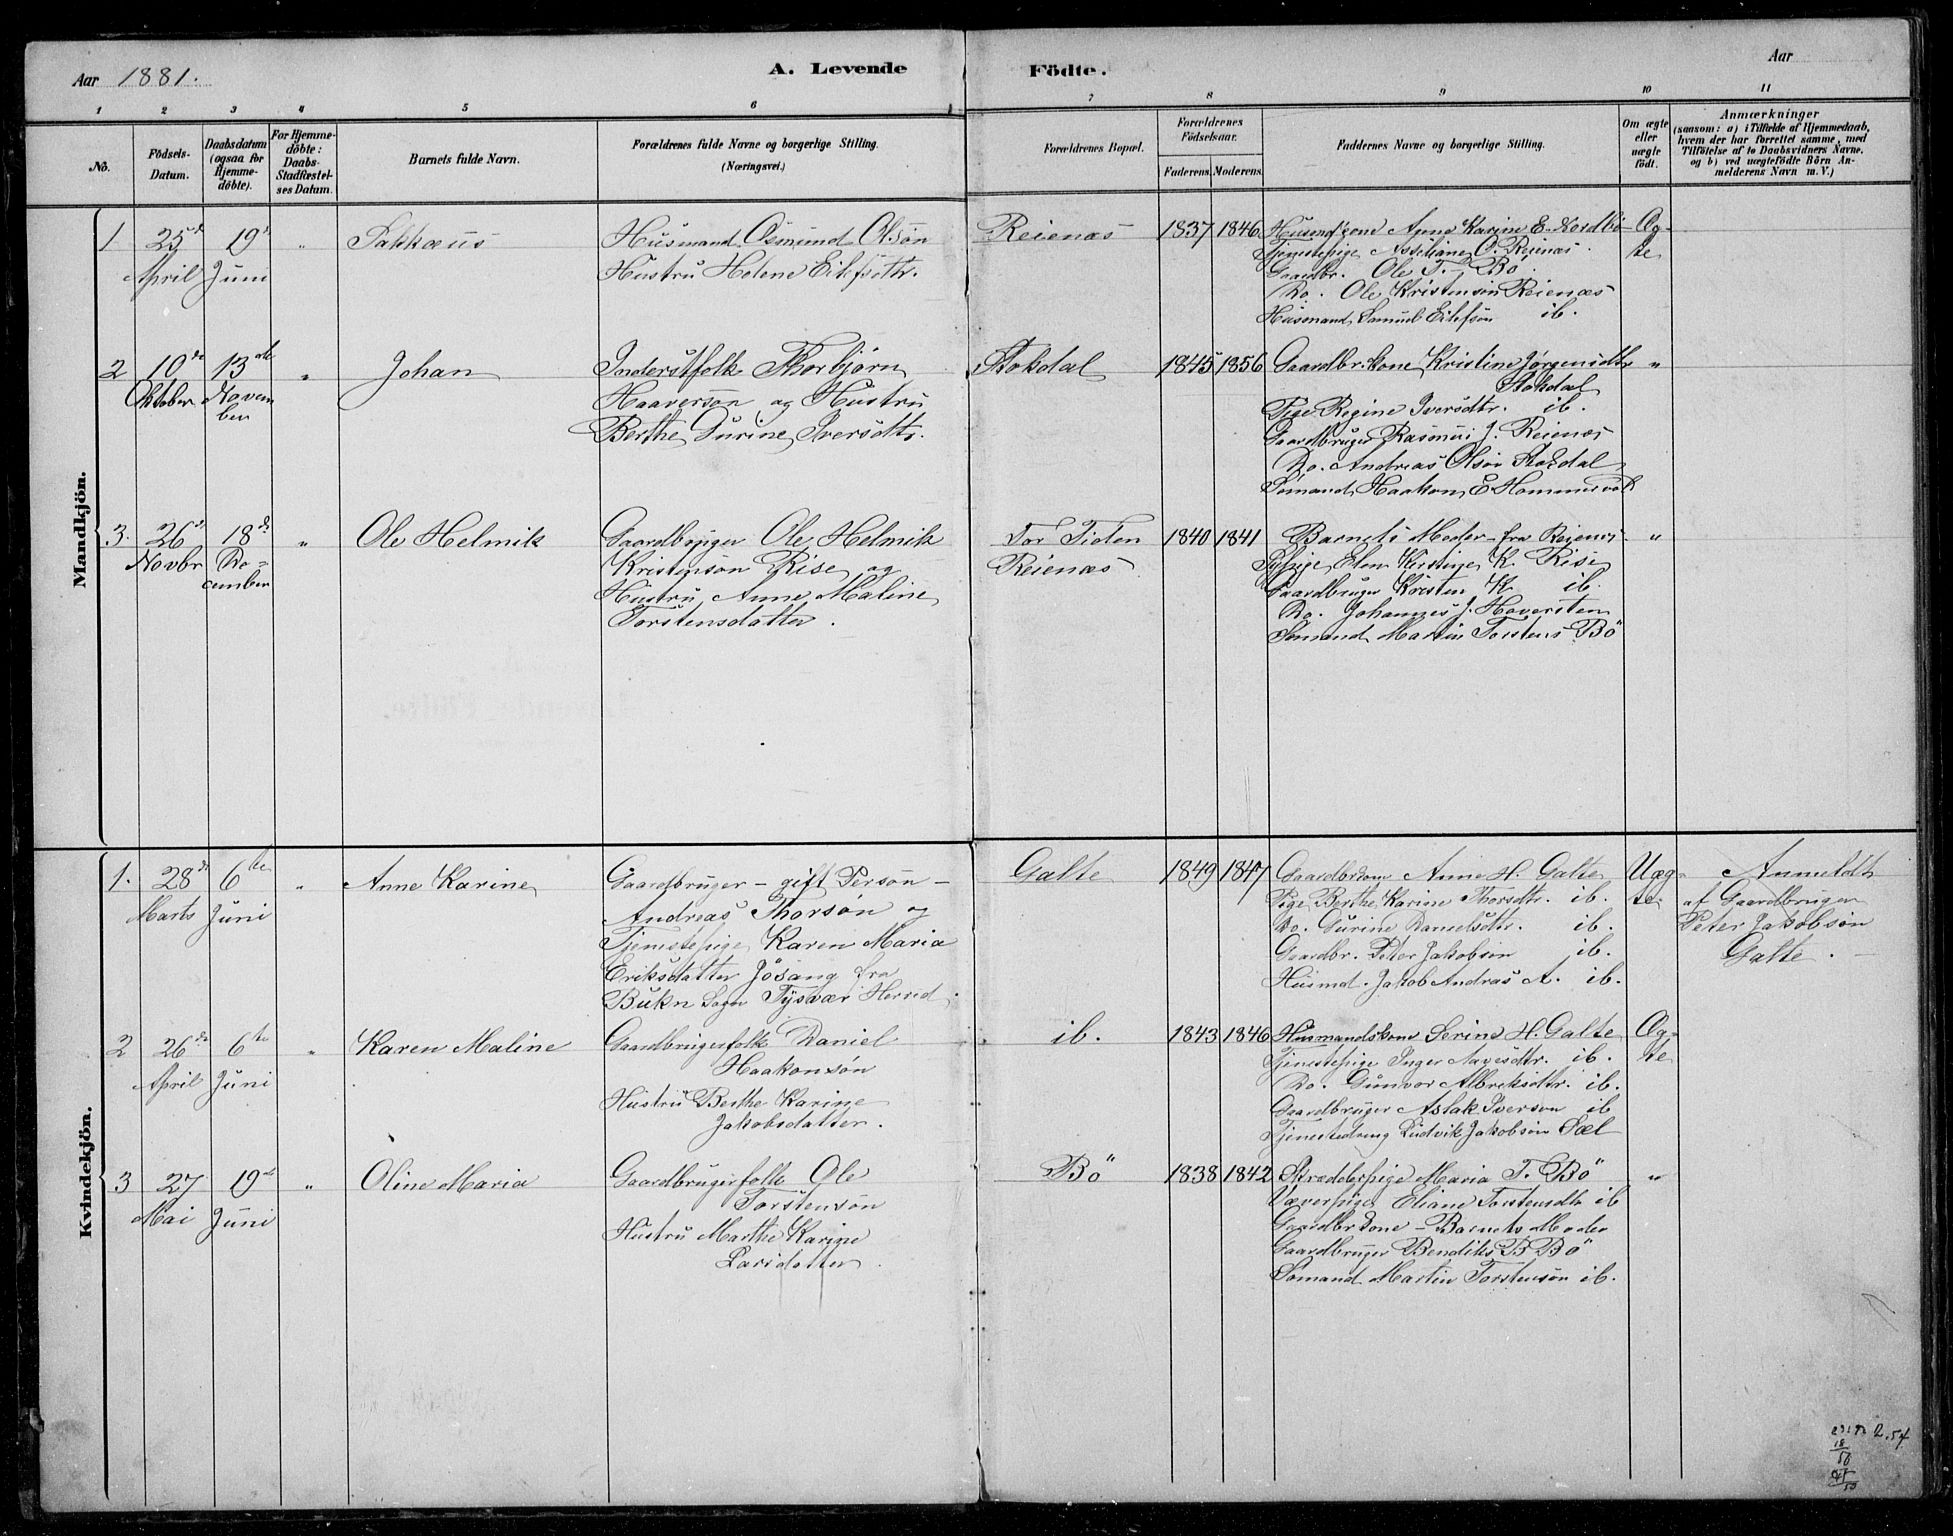 Aar 1881.
A. Levende Födte.
Aar
1 2 3 4 5 6 7 8 9 10 11
No.
Födsels-Datum.
Daabsdatum (ogsaa for Hjemme-döbte).
For Hjemme-döbte: Daabs-Stadfæstel-ses Datum.
Barnets fulde Navn.
Forældrenes fulde Navne og borgerlige Stilling. (Næringsvei.)
Forældrenes Bopæl.
Forældrenes Födselsaar.
Faderens. Moderens.
Faddernes Navne og borgerlige Stilling.
Om ægte eller uægte födt.
Anmærkninger (saasom: a) i Tilfælde af Hjemmedaab, hvem der har forrettet samme, med Tilföielse af to Daabsvidners Navne, og b) ved uægtefödte Börn An-melderens Navn m. V.)
Mandkjön.
1 25de April 19de Juni " Sakkæus
Husmand Osmund Olsön
Hustru Helene Eilefsdtr.
Reienæs 1837 1846
Husmdkone Anne Karine E. Nordbö
Tjenestepige Asseliane O. Reienæs
Gaardbr. Ole T. Bö
Do. Ole Kristensön Reienæs
Husmand Samuel Eilefsön ib.
Æg-
te
2 10de Oktober 13de Novem
ber " Johan
Inderstfolk Thorbjørn
Haaversön og Hustru
Berthe Gurine Iversdtr.
Stokdal 1845 1856
Gaardbr.kone Kristine Jørgensdtr
Stokdal
Pige Regine Iversdtr. ib.
Gaardbruger Rasmus J. Reienæs
Do. Andreas Olsön Stokdal
Sömand Haakon E.
"
3. 26de Novbr 18de De-
cember " Ole Helmik
Gaardbruger Ole Helmik
Kristensön Rise og
Hustru Anne Maline
Torstensdatter.
For Tiden
Reienæs 1840 1841
Barnets Moder fra Reienæs
Elen Kristine K. Rise
Gaardbruger Kristen K. ib.
Do. Johannes J. Hoversten
Sömand Martin Torstens. Bö
"
Kvindekjön.
1. 28de Marts 6te Juni " Anne Karine
Gaardbruger - gift Persön -
Andreas Thorsön og
Tjenestepige Karen Maria
Eriksdatter Jösang fra
Bukn Sogn Tysvær Herred.
Galte 1849 1847
Gaardbrkone Anne H. Galte
Pige Berthe Karine Thorsdtr. ib.
Do. Gurine Danielsdtr. ib.
Gaardbr. Peter Jakobsön ib.
Husmd. Jakob Andras A. ib.
Uæg-
te.
Anmeldt
af Gaardbruger
Peter Jakobsön
Galte.
2 26de April 6te Juni " Karen Maline
Gaardbrugerfolk Daniel
Haakonsön
Hustru Berthe Karine
Jakobsdatter.
ib. 1843 1846
Husmandskone Serine H. Galte
Tjenestepige Inger Aavesdtr. ib.
Do. Gunvor Albriksdtr. ib.
Gaardbruger Aslak Iverson ib
Tjenestedreng Ludvik Jakobsön Sæl
Æg-
te
3 27 Mai 19de Juni " Oline Maria
Gaardbrugerfolk Ole
Torstensön
Hustru Marthe Karine
Larsdatter.
Bö 1838 1842
Skrædderpige Maria T. Bö
Væverpige Eliane Torstensdtr ib
Gaardbrkone - Barnets Moder
Gaardbruger Bendiks B Bö
Sömand Martin Torstensön ib.
"